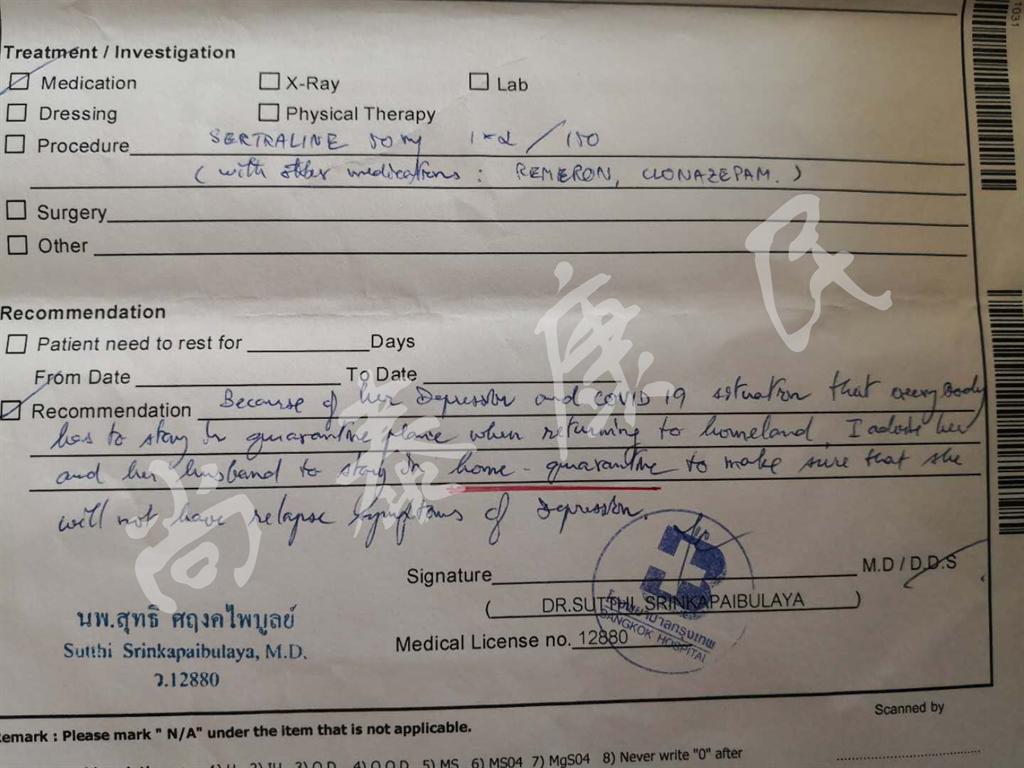 T031
Treatment / Investigation
Medication
X-Ray
Lab
Dressing
Physical Therapy
Procedure SERTRALINE 50 mg 1×2 / 150
( with other medications : REMERON, CLONAZEPAM. )
Surgery
Other
Recommendation
Patient need to rest for Days
From Date To Date
Recommendation Because of her Depression and COVID 19 situation that everybody
has to stay in quarantine place when returning to homeland, I advise her
and her husband to stay in home - quarantine to make sure that she
will not have relapse symptoms of Depression.
尚泰康民
Signature M.D / D.D.S
( DR.SUTTHI SRINKAPAIBULAYA )
Medical License no. 12880
โรงพยาบาลกรุงเทพ
BANGKOK HOSPITAL
นพ.สุทธิ ศฤงคไพบูลย์
Sutthi Srinkapaibulaya, M.D.
ว.12880
Scanned by
emark : Please mark " N/A" under the item that is not applicable.
3) O.D 4) O.O.D 5) MS 6) MS04 7) MgS04 8) Never write "0" after